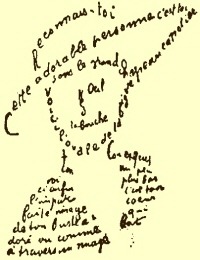 Reconnais-toi
Cette adorable personne c'est toi
sous le grand chapeau canotier
Oeil
la bouche
l'ovale de ta figure
ton
cou exquis
voi
ci enfin
l'impar
faite image
de ton buste a
doré vu comme
à travers un nuage
un peu
plus bas
c'est ton
coeur
qui
bat